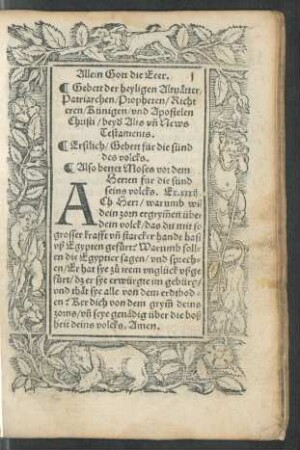 Allein Gott die Eer.
¶ Gebett der heyligen Altuätter/
Patriarchen/Propheten/Richt
eren/Künigen/vnd Apostelen
Christi/beyd Alts vñ News
Testaments.
¶ Erstlich/Gebett für die sünd
des volcks.
¶ Also betet Moses vor dem
Herren für die sünd
seins volcks. Ex.xxxij
ACh Herr/warumb wil
dein zorn ergrymmen übe
dein volck/das du mit so
grosser krafft vñ starcker hande hast
vß Egypten gefürt? Warumb soll-
en die Egyptier sagen/vnd sprech-
en/Er hat sye zů irem vnglück vßge
fürt/dz er sye erwürgte im gebürg/
vnd thät sye alle von dem erdtbod-
en? Ker dich von dem grymm deins
zorns/vñ seye genädig über die boß
heit deins volcks. Amen.